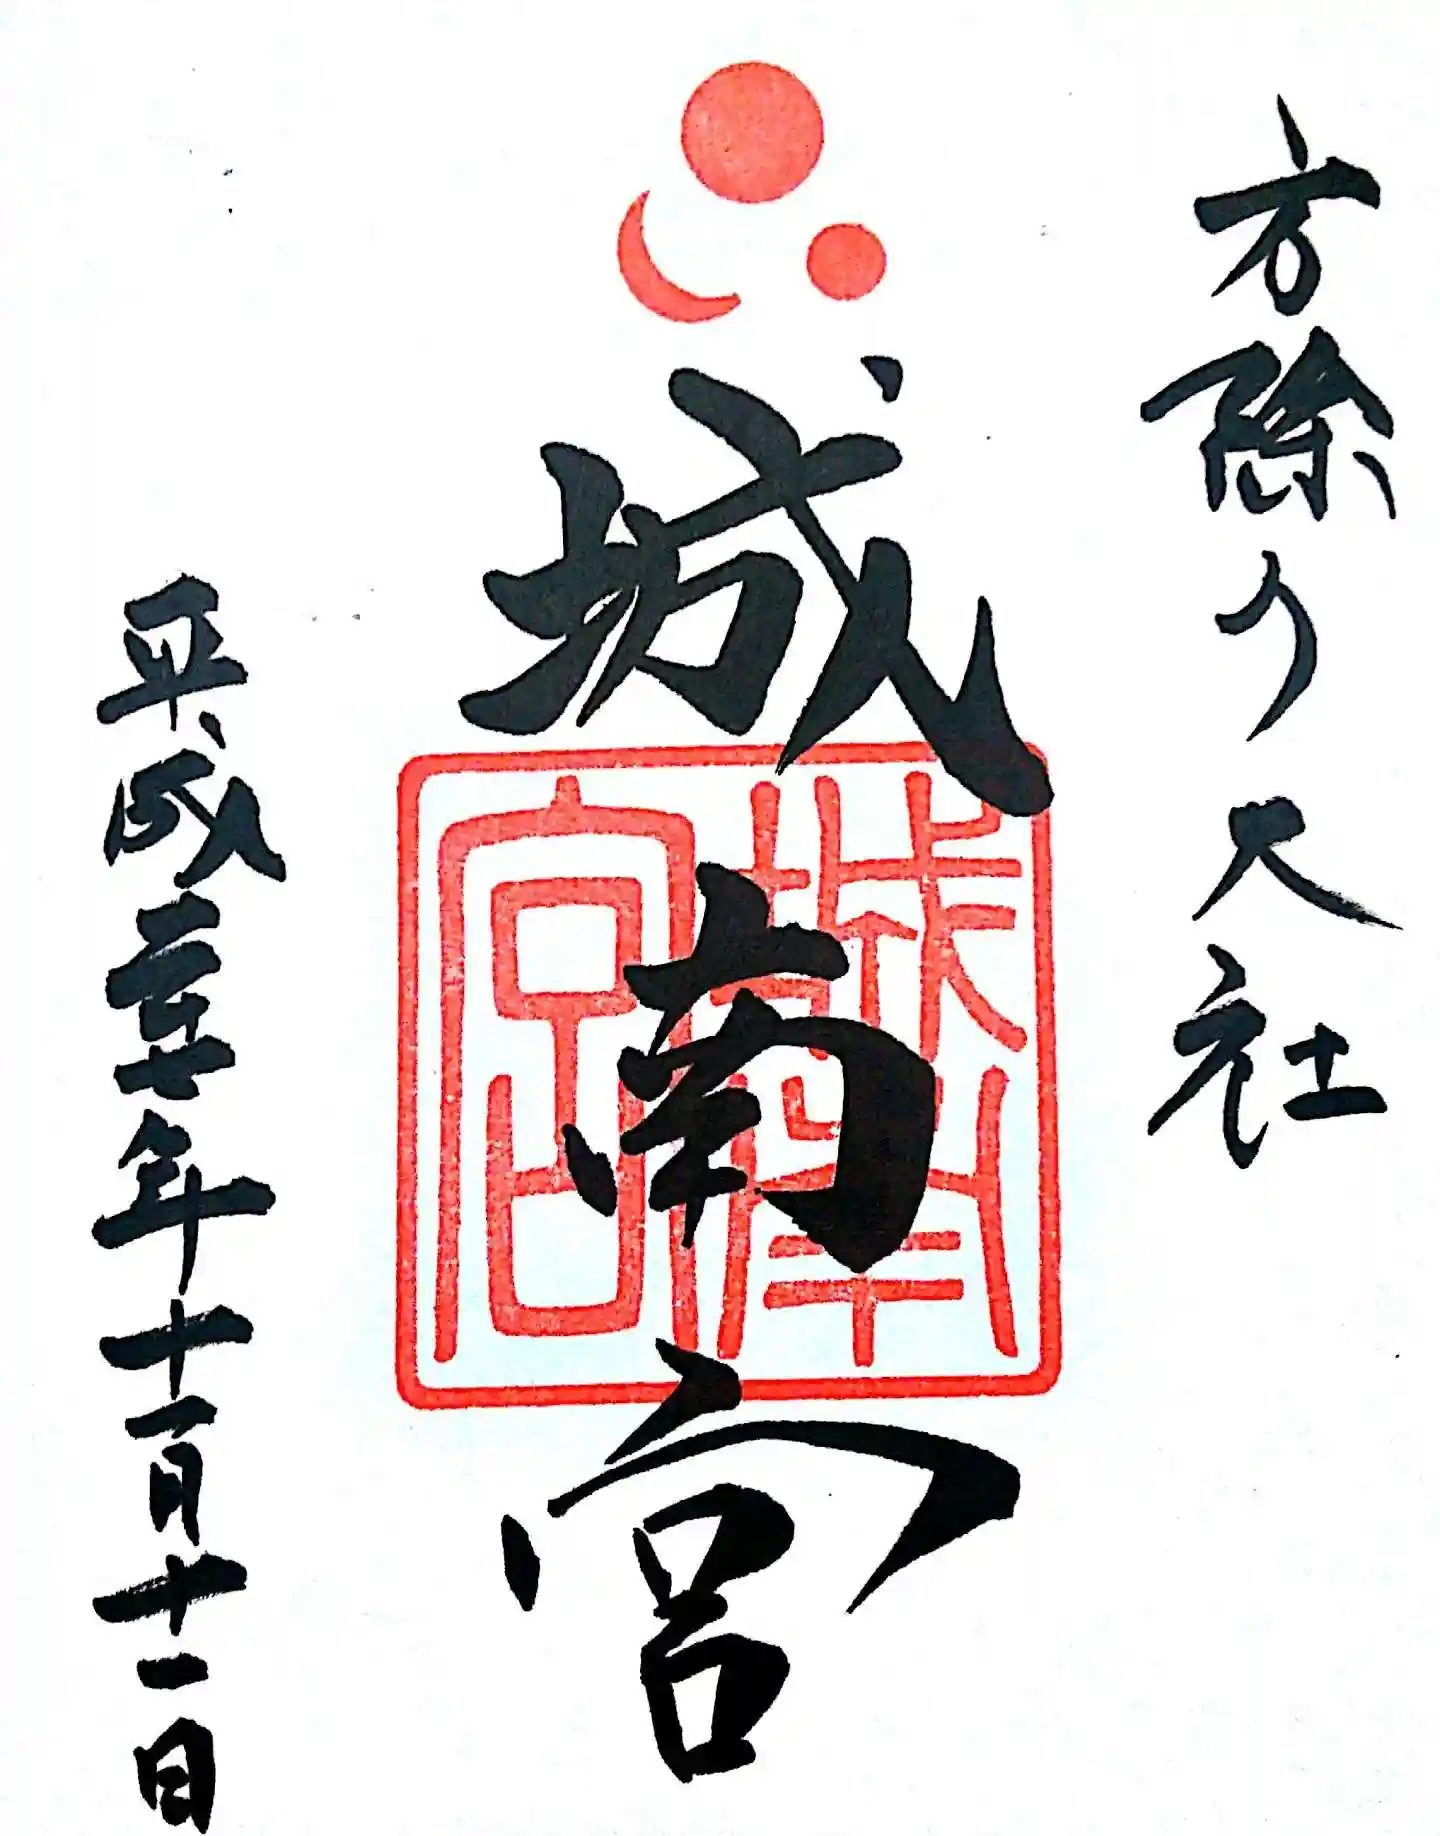 方除の大社
城南宮
城南宮
平成二十七年十一月十一日